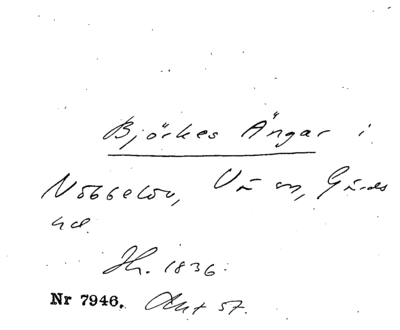 Björkes Ängar i
Nöbbelöv, Gärds
hd.
Sk. 1836.
Nr 7946. Akt 57.